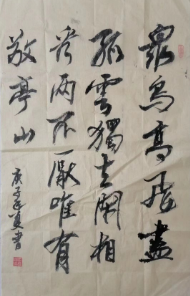 眾鳥高飛盡
孤雲獨去閑相
看兩不厭唯有
敬亭山
庚子夏書